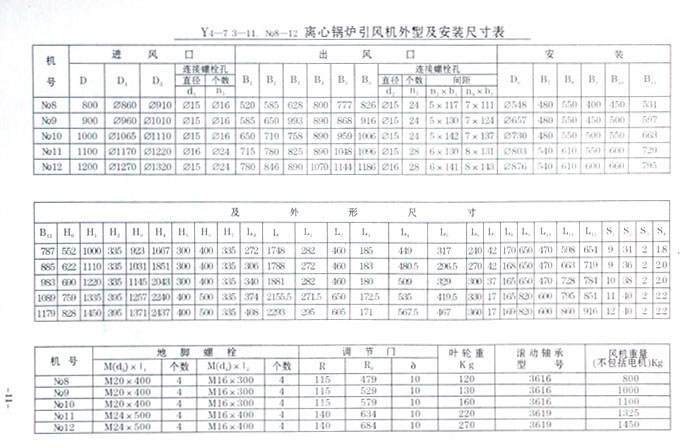 Y4—73—11. №8—12 离心锅炉引风机外型及安装尺寸表
机号 进风口 出风口 安装
连接螺栓孔 连接螺栓孔
直径 个数 直径 个数 间距
№8 800 ∅860 ∅910 ∅15 ∅16 520 585 628 800 777 826 ∅15 24 5×117 7×111 ∅548 480 550 400 450 531
№9 900 ∅960 ∅1010 ∅15 ∅16 585 650 993 890 868 916 ∅15 24 5×130 7×124 ∅657 480 550 450 500 597
№10 1000 ∅1065 ∅1110 ∅15 ∅16 650 710 758 890 959 1006 ∅15 24 5×142 7×137 ∅730 480 550 500 550 663
№11 1100 ∅1170 ∅1220 ∅16 ∅24 715 780 825 890 1048 1096 ∅15 28 6×130 8×131 ∅803 540 610 550 600 729
№12 1200 ∅1270 ∅1320 ∅15 ∅24 780 846 890 1070 1144 1186 ∅16 28 6×141 8×143 ∅876 540 610 600 660 795
及外形尺寸
787 552 1000 335 923 1667 300 400 335 272 1748 282 460 185 449 317 240 42 170 650 470 598 654 9 34 2 1.8
885 622 1110 335 1031 1851 300 400 335 306 1788 272 460 183 480.5 296.5 270 42 168 650 470 663 719 9 36 2 2.0
983 690 1220 335 1145 2043 300 400 335 340 1881 282 460 180 509 329 300 37 165 650 470 728 784 10 38 2 2.0
1089 759 1335 395 1257 2240 400 500 335 374 2155.5 271.5 650 172.5 535 419.5 330 17 165 820 600 795 851 11 40 2 2.2
1179 828 1450 395 1371 2437 400 500 335 408 2293 295 605 171 567.5 467 360 17 169 820 600 860 916 12 40 2 2.2
机号 地脚螺栓 调节门 叶轮重 滚动轴承 风机重量
个数 个数 R δ Kg 型号 (不包括电机)Kg
№8 M20×400 4 M16×300 4 115 479 10 120 3616 800
№9 M20×400 4 M16×300 4 115 529 10 130 3616 1000
№10 M20×400 4 M16×300 4 115 579 10 160 3616 1100
№11 M24×500 4 M16×400 4 140 634 10 220 3619 1325
№12 M24×500 4 M16×400 4 140 684 10 270 3619 1450
—11—